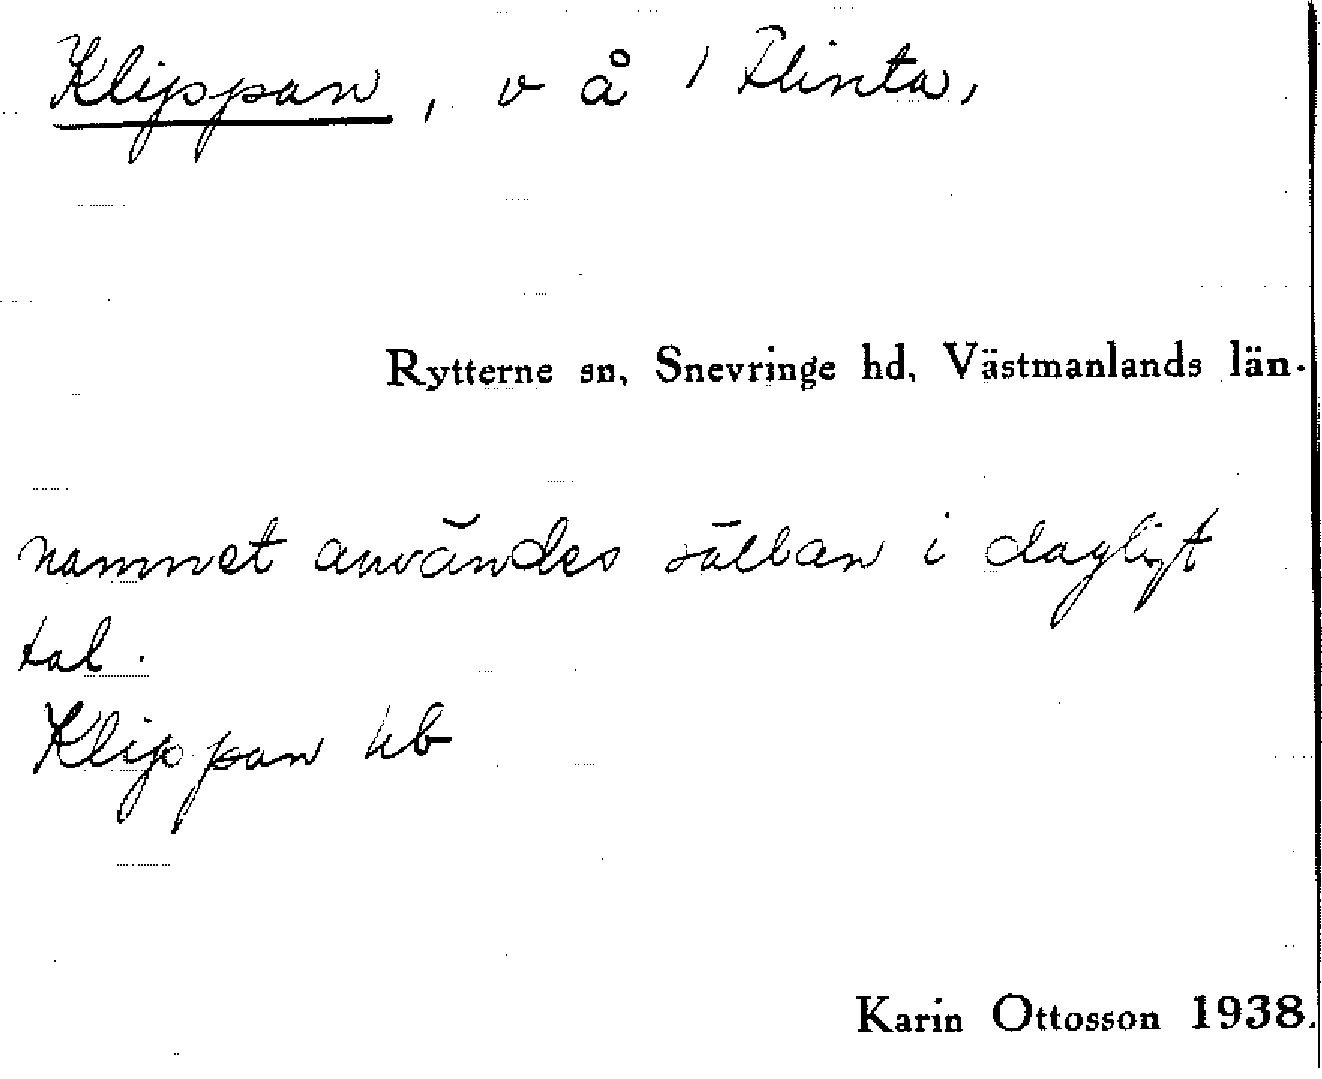 Klippan, v å / Flinta,
Rytterne sn, Snevringe hd, Västmanlands län.
namnet användes sällan i dagligt
tal.
Klippan hb
Karin Ottosson 1938.